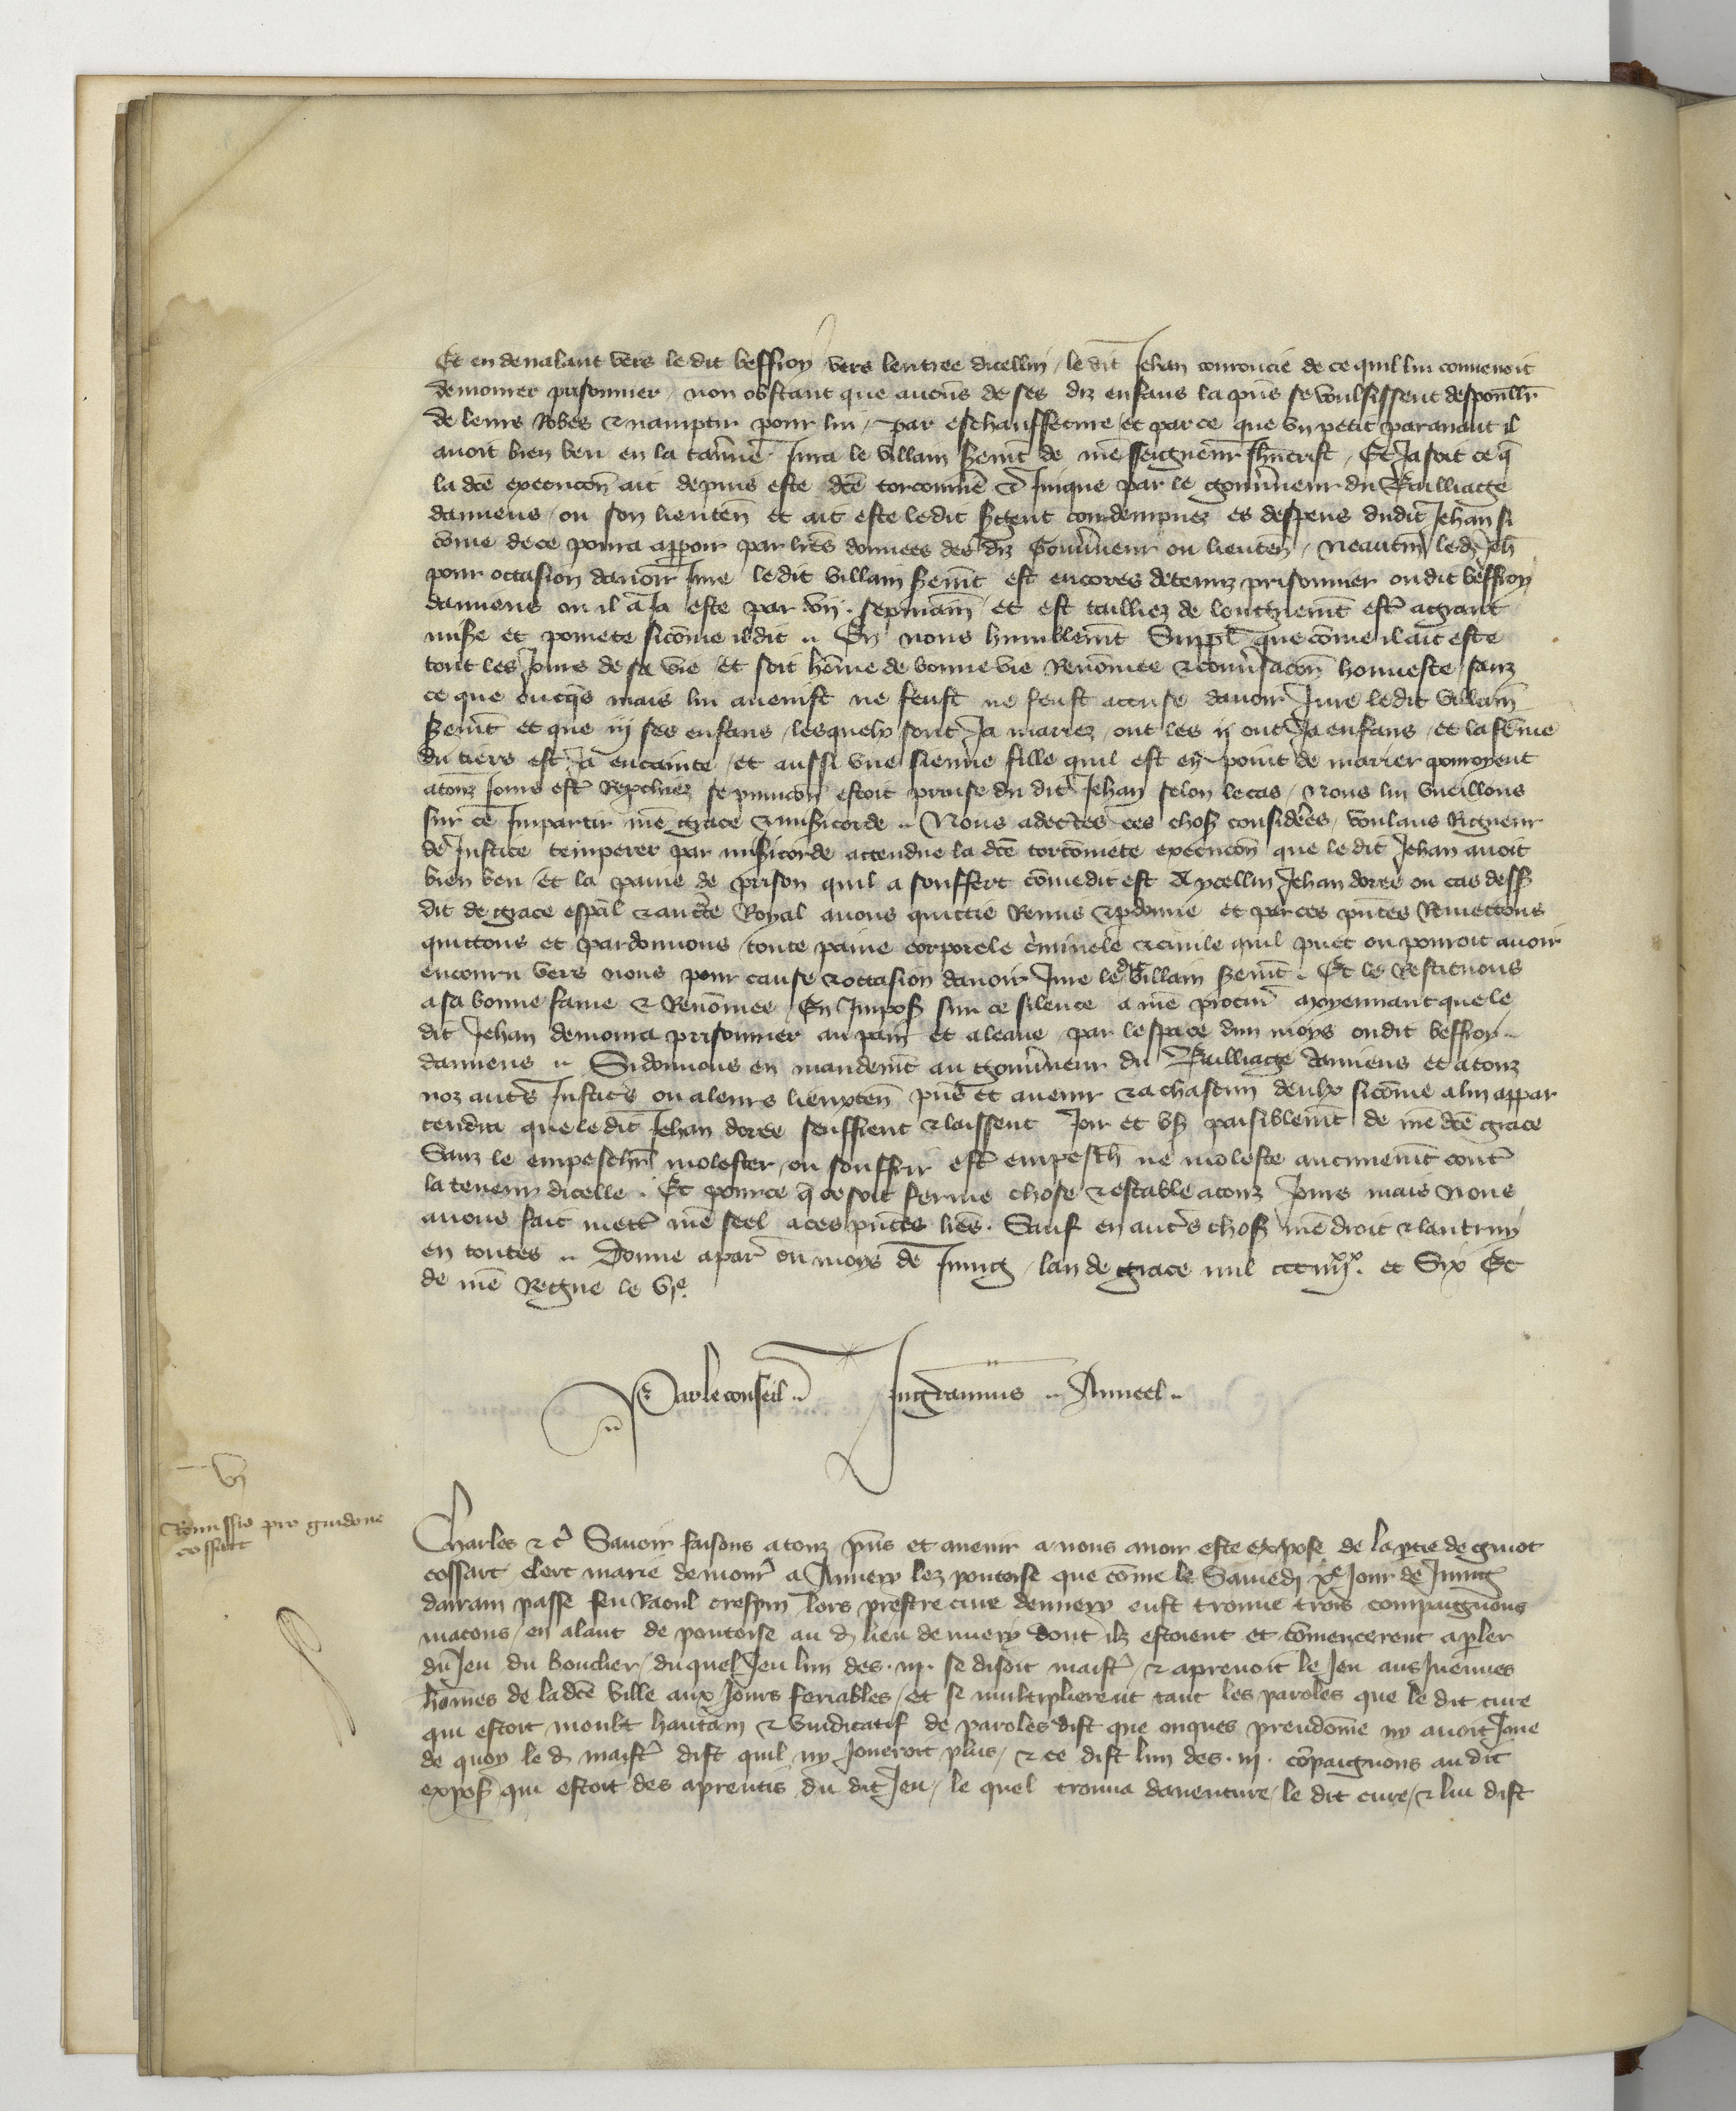 Et en devalant vers le dit beffroy vers lentree dicellui le dit Jehan courroucie de ce quil lui convenoit
demourer prisonnier non obstant que aucuns de ses diz enfans la pñs se voulsissent despouillr
de leurs robes & namptir pour lui par eschauffeture et par ce que un petit paravant il
avoit bien beu en la tav̄ne Jura le villain serm̄t de nr̄e seigneur Jhūcrist Et ja soit ce q̄
la dc̄e execucōn ait depuis este dc̄e torconniē & Inique par le gouvn̄eur du Bailliage
damiens ou son lieuten̄ et ait este ledit sergent condempnez es despens dudit Jehan si
cōme de ce pourra apparoir par lr̄es donnees des diz Gouvn̄eur ou lieuten̄ Neantm̄ led Jeh̄
pour occasion davoir Jure ledit villain serm̄t est encores detenuz prisonnier oudit beffroy
damiens ou il a Ja este par vij sepmain̄ et est tailliez de longuem̄t estr̄ a grant
mis̄e et povrete sicōme il dit En nous humblem̄t Suppl̄ que cōme il ait este
tout les Jours de sa vie et soit hōme de bonne vie Renōmee & conv̄sacōn honneste sanz
ce que oncq̄s mais lui avenist ne feust ne feust accuse davoir Jure ledit villain
serm̄t et que iij ses enfans lesquelx sont Ja mariez ont les ij ont Ja enfans et la fēme
du tiers est Ja encainte et aussi une sienne fille quil est en point de marier pourroyent
a touz Jours estr̄ Reprochiez se punicōn estoit prinse du dit Jehan selon le cas Nous lui vueillons
sur ce Impartir nr̄e grace & mis̄icorde Nous adec̄tes ces chos̄ considēes voulans Rigueur
de Justice temperer par mis̄icorde actendue la dc̄e torcōnnere execucōn que le dit Jehan avoit
bien beu Et la paine de prison quil a souffert cōme dit est A ycellui Jehan doree ou cas dess̄
dit de grace esp̄al & auctē Royal avons quictie Remis & pdonne et par ces pn̄tes Remettons
quittons et pardonnons toute paine corporele criminele & civile quil puet ou pourroit avoir
encouru vers nous pour cause & occasion davoir Jure le dit villain serm̄t Et le Restituons
a sa bonne fame & Renōmee En Impos̄ sur ce silence a nr̄e procur̄ moyennant que le
dit Jehan demourra prisonnier au pain et a leaue par lespace dun moys oudit beffroy
damiens Si donnons en mandem̄t au gouvn̄eur du Bailliage damiens et a touz
noz autr̄s Justic̄s ou a leurs lieuxten̄ pn̄s et avenir & a chascun deulx sicōme a lui appar
tendra que le dit Jehan doree seuffrent & laissent Joir et us̄ paisiblem̄t de nr̄e dc̄e grace
Sanz le empeschr̄ molester ou souffrir estr̄ empesch̄ ne moleste aucunem̄t contr̄
la teneur dicelle Et pource q̄ ce soit ferme chose & estable a touz Jours mais Nous
avons fait mettr̄ nr̄e seel a ces pn̄tes lr̄es Sauf en autr̄s chos̄ nr̄e droit & lautruy
en toutes Donne a par̄ ou moys de Juing lan de grace mil ccc iiijxx et Six Et
de nr̄e Regne le vje
Par le conseil Ingramus Anneel
vj
Remissio pro guidone
cossart
Charles & c̄ Savoir faisons a touz pn̄s et avenir a nous avoir este expose de la ptie de guiot
cossart clerc marie demour̄ a Annery lez pontoise que cōme le Samedi xe Jour de Juing
darrain passe feu Raoul crespin lors prestre cure dennery eust trouve trois compaignons
macons en alant de pontoise au d lieu dennery dont ilz estoient et cōmencerent a pler
du Jeu du boucler duquel Jeu lun des iij se disoit maistr̄ & aprenoit le Jeu aus Juennes
hōmes de la dc̄e ville aux Jours feriables et se multiplierent tant les paroles que le dit cure
qui estoit moult hautain & vindicatif de paroles dist que onques preudōme ny avoit Joue
de quoy le d maistr̄ dist quil ny Joueroit plus & ce dist lun des iij cōpaignons au dit
expos̄ qui estoit des aprentis du dit Jeu le quel trouva daventure le dit cure & lui dist